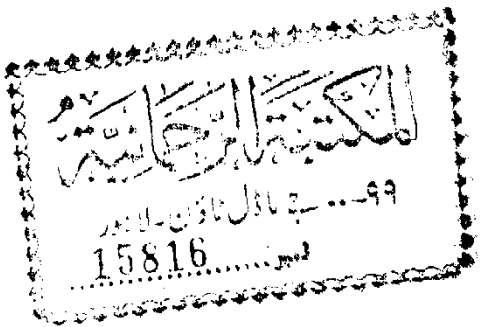 المکتبۃ الرحمانیۃ
۹۹..... جے ماڈل ٹاؤن۔لاہور
نمبر.....15816.....